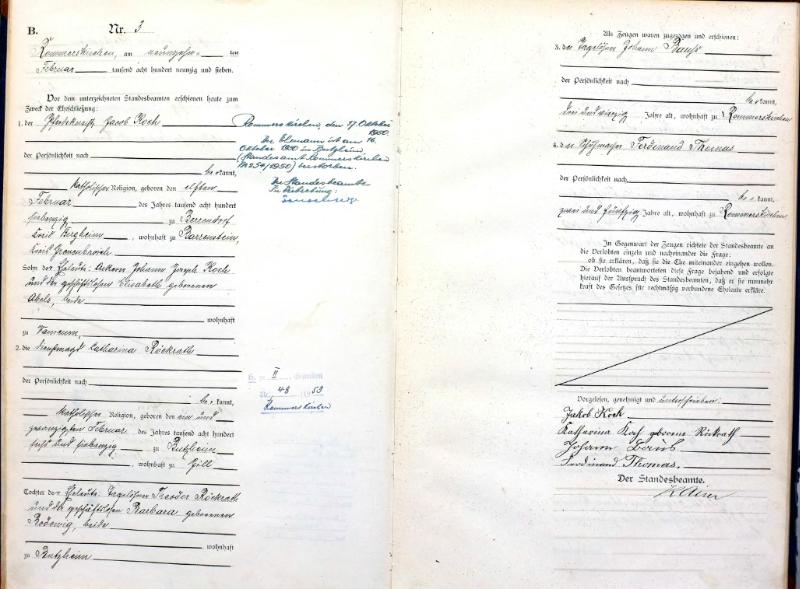 B.
Nr. 3
Rommerskirchen, am neunzehn ten
Februar tausend acht hundert neunzig und sieben.
Vor dem unterzeichneten Standesbeamten erschienen heute zum
Zweck der Eheschließung:
1. der Pferdeknecht Jacob Koch
der Persönlichkeit nach
be kannt,
katholischer Religion, geboren den elften
Februar des Jahres tausend acht hundert
siebenzig zu Berrendorf
Kreis Bergheim, wohnhaft zu Barrenstein,
Kreis Grevenbroich
Sohn der Eheleute: Ackerer Johann Joseph Koch
und der geschäftslosen Elisabeth geborenen
Abels, beide
wohnhaft
zu
2. die Dienstmagd Catharina Röckrath
der Persönlichkeit nach
be kannt,
katholischer Religion, geboren den ein und
zwanzigsten Februar des Jahres tausend acht hundert
sechs und siebenzig zu Butzheim
wohnhaft zu Gill
Tochter der Eheleute: Tagelöhner Theodor Röckrath
und der geschäftslosen Barbara geborenen
beide
wohnhaft
zu Butzheim
Rommerskirchen, den 17. Oktober
1950.
Der Ehemann ist am 16.
Oktober 1950 in Butzheim
(Standesamt Rommerskirchen
Nr 254/1950) verstorben.
Der Standesbeamte
In Vertretung:
II
48 1953
Rommerskirchen
Als Zeugen waren zugezogen und erschienen:
3. der Tagelöhner Johann
der Persönlichkeit nach
be kannt,
drei und vierzig Jahre alt, wohnhaft zu Rommerskirchen
4. der Schuhmacher Ferdinand Thomas
der Persönlichkeit nach
be kannt,
zwei und fünfzig Jahre alt, wohnhaft zu Rommerskirchen
In Gegenwart der Zeugen richtete der Standesbeamte an
die Verlobten einzeln und nacheinander die Frage:
ob sie erklären, daß sie die Ehe miteinander eingehen wollen.
Die Verlobten beantworteten diese Frage bejahend und erfolgte
hierauf der Ausspruch des Standesbeamten, daß er sie nunmehr
kraft des Gesetzes für rechtmäßig verbundene Eheleute erkläre.
Vorgelesen, genehmigt und unterschrieben
Jakob Koch
Katharina Koch geborene Röckrath
Johann
Ferdinand Thomas.
Der Standesbeamte.